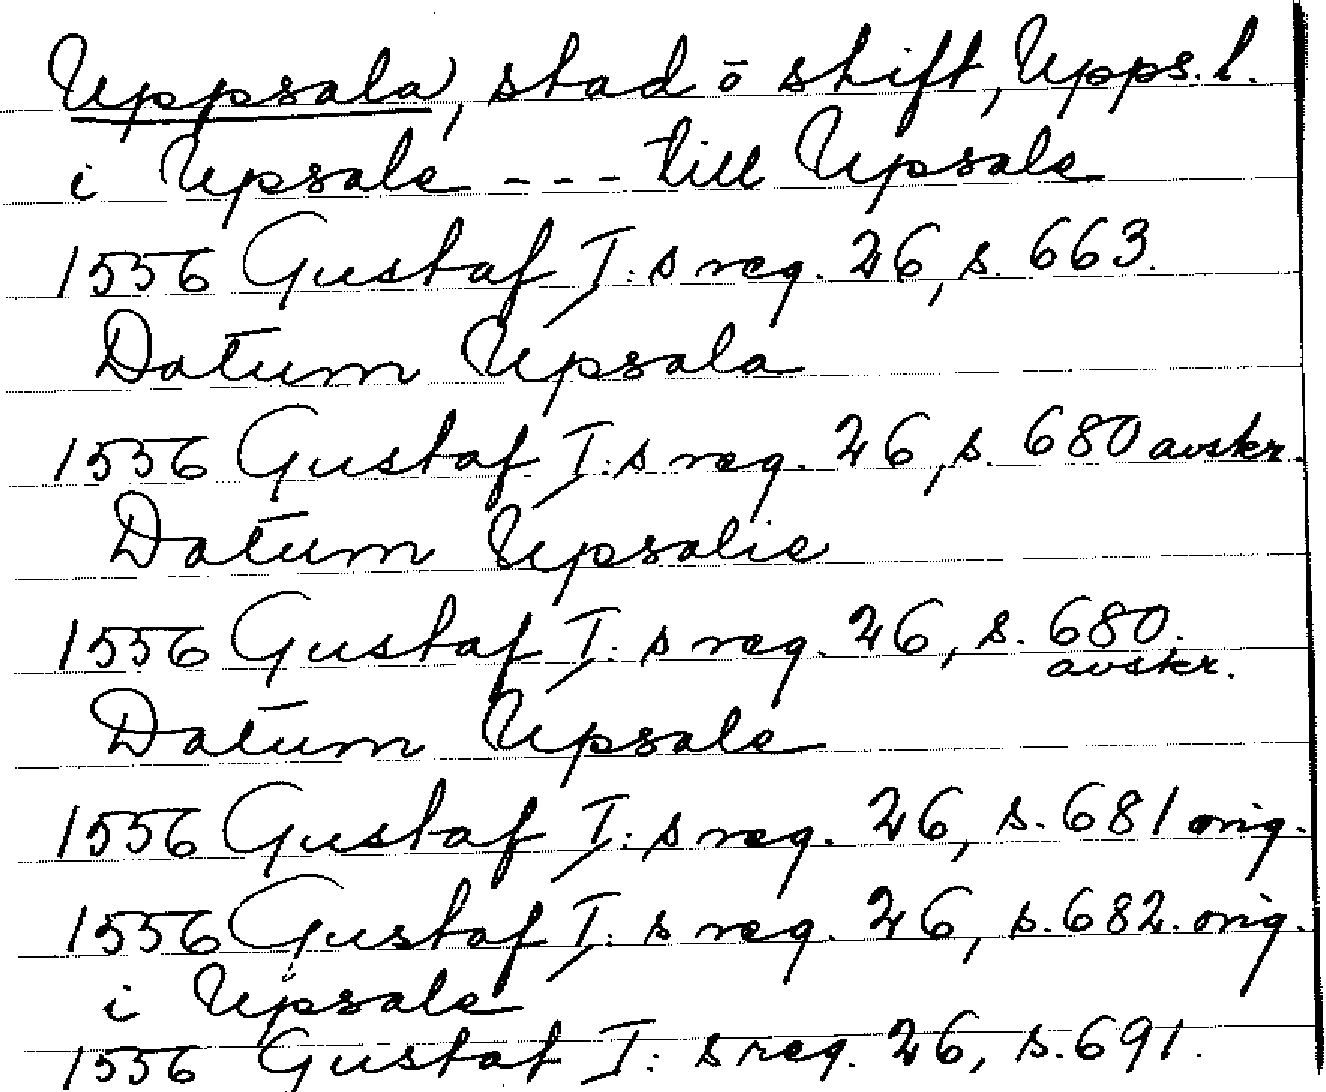 Uppsala, stad ō skift, Upps. l.
i Upsale --- till Upsale
1556 Gustaf I:s reg. 26, s. 663.
Datum Upsala
1556 Gustaf I:s reg. 26, s. 680 avskr.
Datum Upsalie
1556 Gustaf I:s reg. 26, s. 680.
avskr.
Datum Upsale
1556 Gustaf I:s reg. 26, s. 681 orig.
1556 Gustaf I:s reg. 26, s. 682. orig.
i Upsale
1556 Gustaf I:s reg. 26, s. 691.